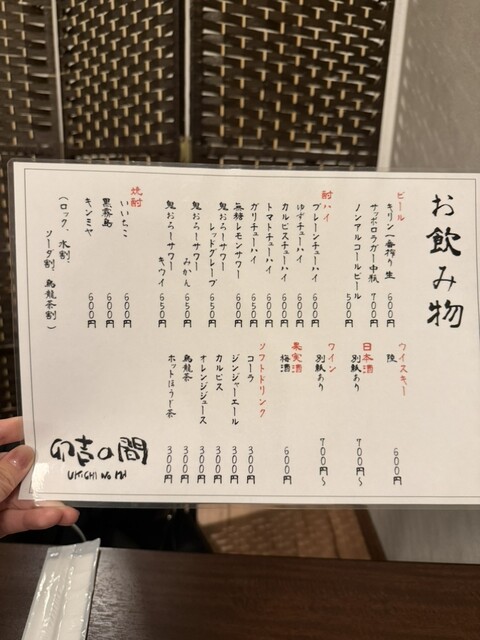 お飲み物
ビール
キリン一番搾り 生 600円
サッポロラガー中瓶 700円
ノンアルコールビール 500円
酎ハイ
プレーンチューハイ 600円
ゆずチューハイ 600円
カルピスチューハイ 600円
トマトチューハイ 600円
ガリチューハイ 650円
無糖レモンサワー 600円
鬼おろしサワー
レッドグレープ 650円
鬼おろしサワー
みかん 650円
鬼おろしサワー
キウイ 650円
焼酎
いいちこ 600円
黒霧島 600円
キンミヤ 600円
(ロック、水割、
ソーダ割、烏龍茶割)
ウイスキー
陸 600円
日本酒
別紙あり 700円〜
ワイン
別紙あり 700円〜
果実酒
梅酒 600円
ソフトドリンク
コーラ 300円
ジンジャーエール 300円
カルピス 300円
オレンジジュース 300円
烏龍茶 300円
ホットほうじ茶 300円
卯吉の間
UKICHI No MA